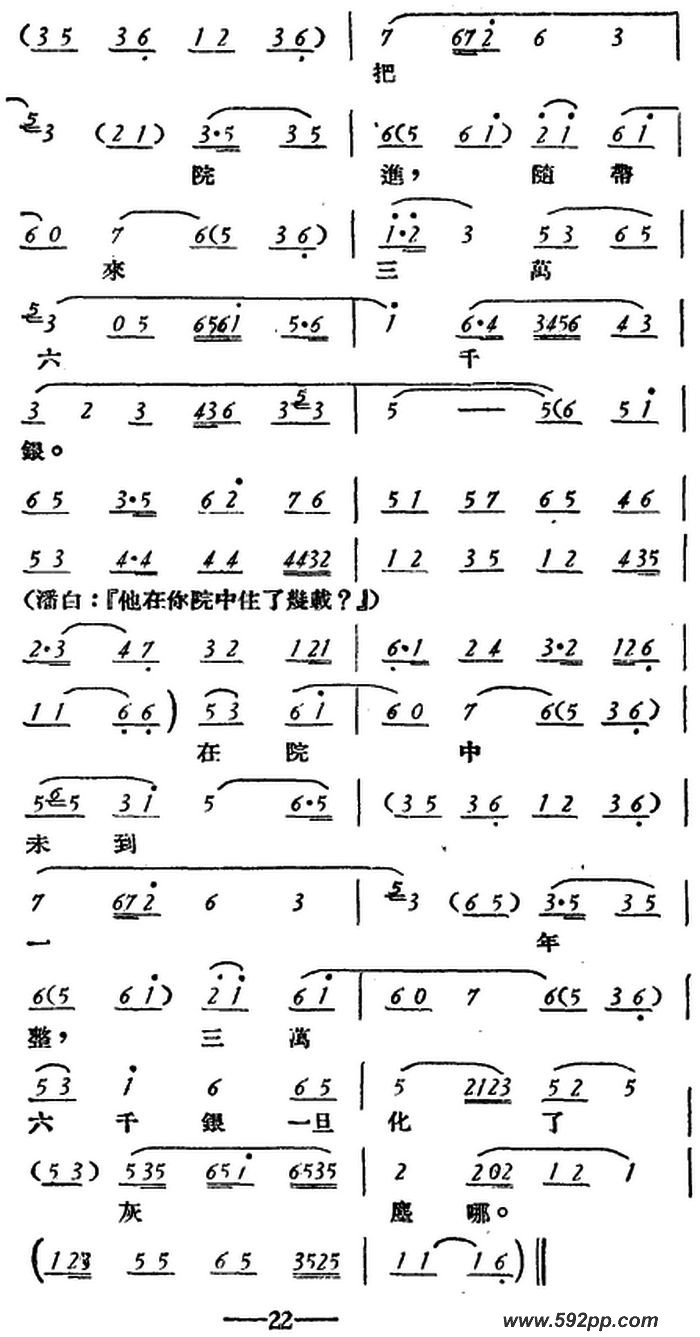 (35 36 12 36) | 7 672 6 3
把
53 (21) 3·5 35 | 6(5 61) 21 61
院 進， 隨 帶
60 7 6(5 36) | 1·2 3 53 65
來 三 萬
53 05 6561 5·6 | 1 6·4 3456 43
六 千
3 2 3 436 353 | 5 — 5(6 51
銀。
65 3·5 62 76 | 51 57 65 46
53 4·4 44 4432 | 12 35 12 435
(潘白：『他在你院中住了幾載？』)
2·3 47 32 121 | 6·1 24 3·2 126
11 66) 53 61 | 60 7 6(5 36)
在 院 中
565 31 5 6·5 | (35 36 12 36)
未 到
7 672 6 3 | 53 (65) 3·5 35
一 年
6(5 61) 21 61 | 60 7 6(5 36)
整， 三 萬
53 1 6 65 | 5 2123 52 5
六 千 銀 一旦 化 了
(53) 535 651 6535 | 2 202 12 1
灰 塵 哪。
(123 55 65 3525 | 11 16)
—22—
www.592pp.com